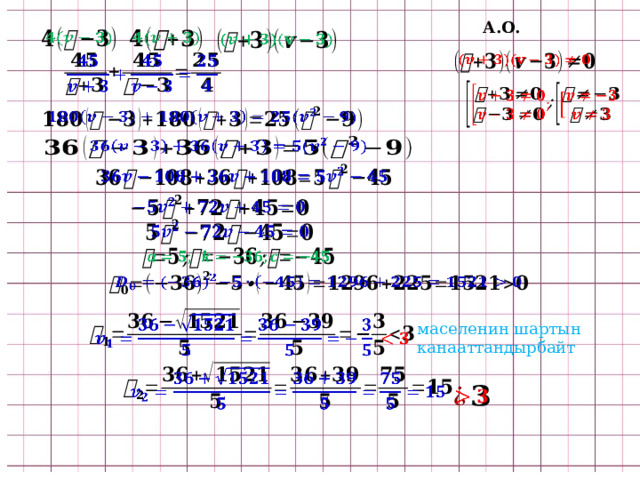 4(v − 3) 4(v + 3) (v + 3)(v − 3)
А.О.
45/(v + 3) + 45/(v − 3) = 25/4
(v + 3)(v − 3) ≠ 0
[v + 3 ≠ 0 ; [v ≠ −3
[v − 3 ≠ 0 [v ≠ 3
180(v − 3) + 180(v + 3) = 25(v² − 9)
36(v − 3) + 36(v + 3) = 5(v² − 9)
36v − 108 + 36v + 108 = 5v² − 45
−5v² + 72v + 45 = 0
5v² − 72v − 45 = 0
a = 5; k = −36; c = −45
D₀ = (−36)² − 5 · (−45) = 1296 + 225 = 1521 > 0
v₁ = (36 − √1521)/5 = (36 − 39)/5 = −3/5 < 3
маселенин шартын
канааттандырбайт
v₂ = (36 + √1521)/5 = (36 + 39)/5 = 75/5 = 15 > 3